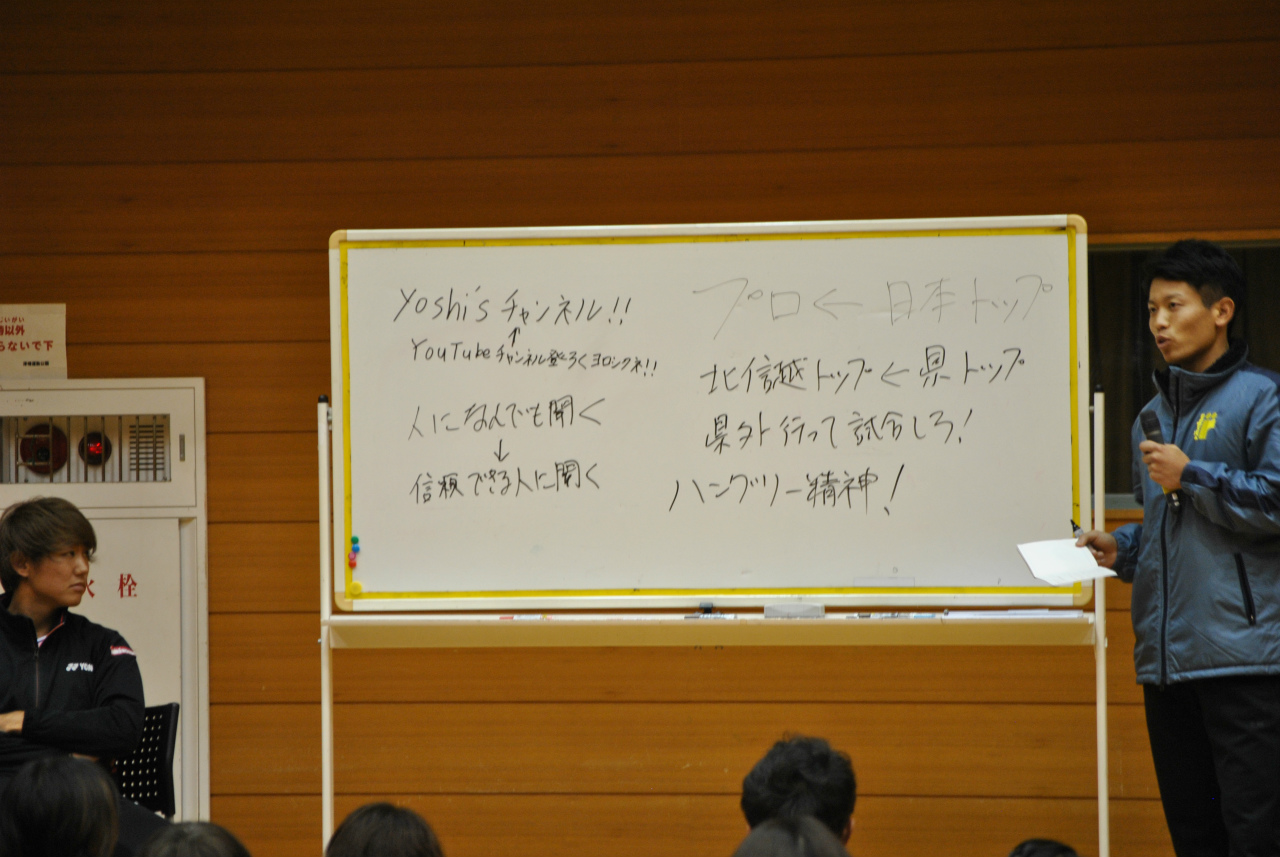 Yoshi's チャンネル!!
↑
YouTubeチャンネル登ろくヨロシクネ!!
人になんでも聞く
↓
信頼できる人に聞く
プロ ← 日本トップ
北信越トップ ← 県トップ
県外行って試合しろ!
ハングリー精神!
以外
らないで下
栓
YON